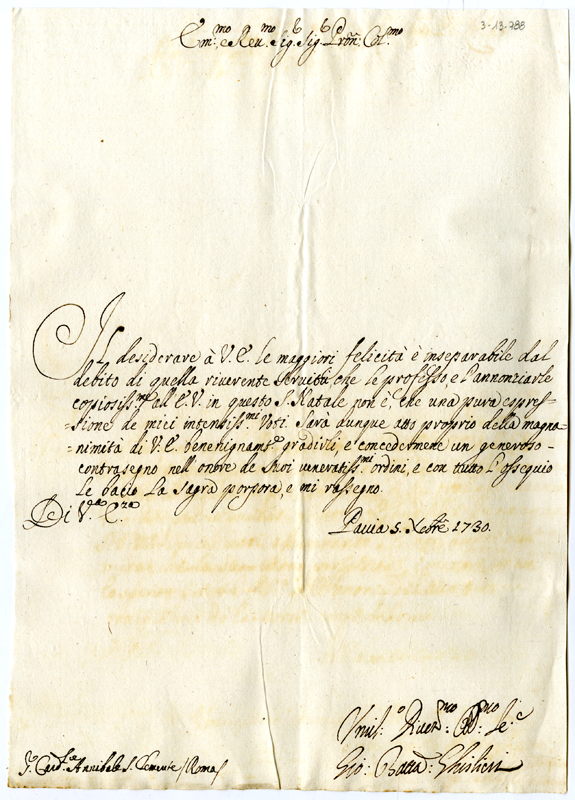 3-13-788
Em.mo e Rev.mo Sig.r Sig.r Pron: Col.mo
Il desiderare à V.E. le maggiori felicità è inseparabile dal
debito di quella riverente Servitù che le professo, e l'annonziarle
copiosiss.me all'E.V. in questo S. Natale non è, che una pura espres=
=sione de miei intensiss.mi Voti. Sarà dunque atto proprio della magna=
=nimità di V.E. benehignam.te gradirli, e concedermene un generoso
contrasegno nell'onore de Suoi veneratiss.mi ordini, e con tutto l'ossequio
Le bacio la Sagra porpora, e mi rassegno.
Di V.ra E.za
Pavia 5. Xbre 1730.
Umil.o Dev.mo Obb.mo Se.e
Gio: Batta: Ghislieri
S.r Card.le Annibale S. Clemente / Roma /